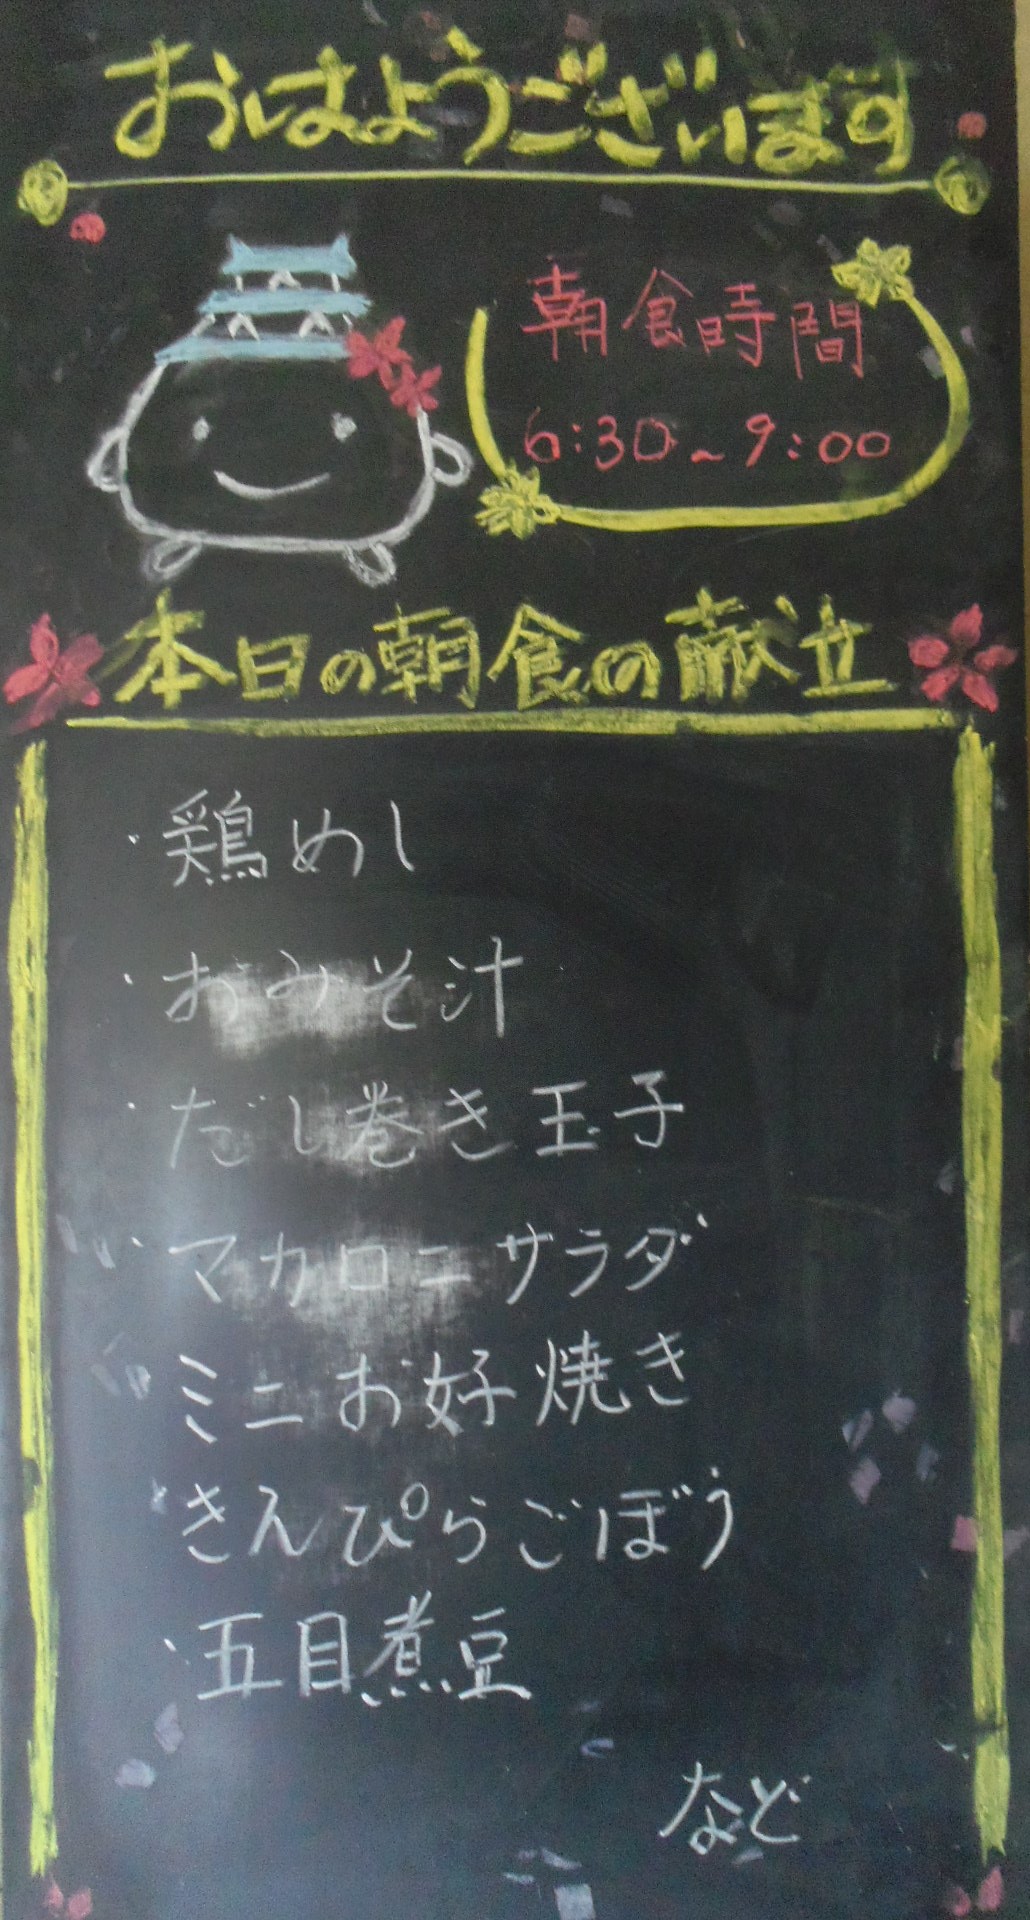 おはようございます
朝食時間
6:30~9:00
本日の朝食の献立
・鶏めし
・おみそ汁
・だし巻き玉子
・マカロニサラダ
・ミニお好焼き
・きんぴらごぼう
・五目煮豆
など